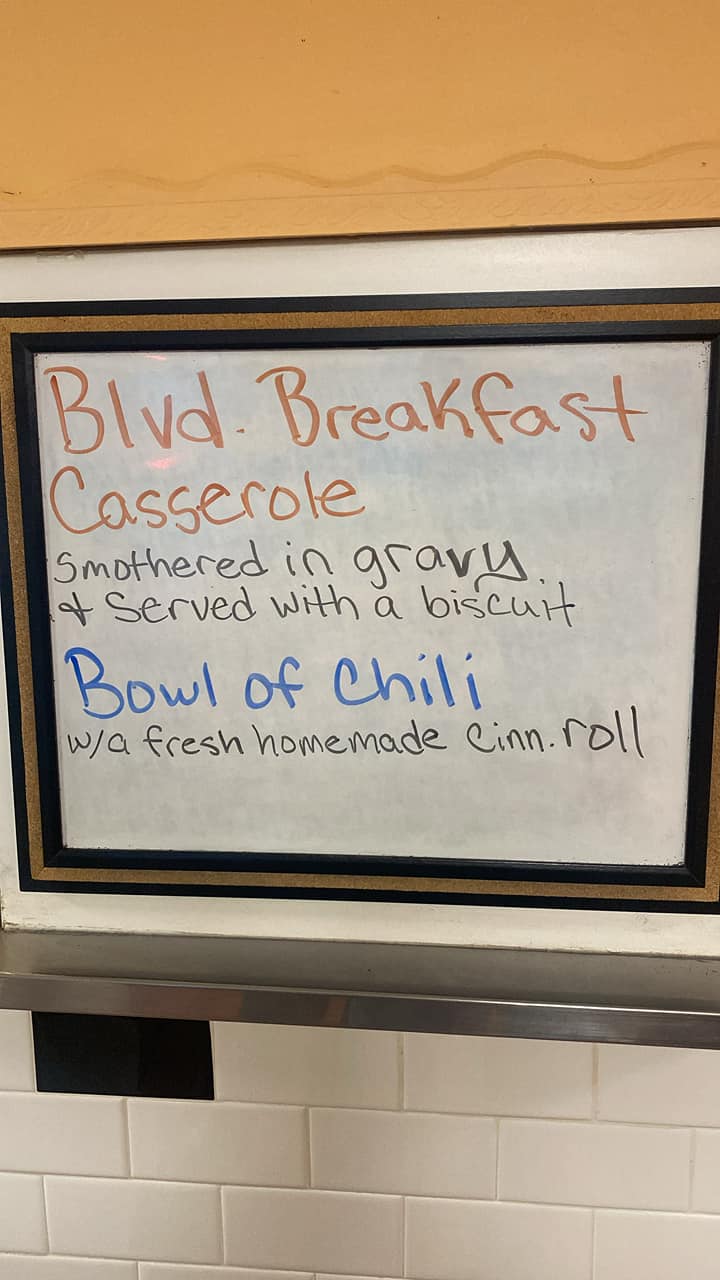 Blvd. Breakfast
Casserole
Smothered in gravy
& Served with a biscuit
Bowl of Chili
w/a fresh homemade Cinn. roll